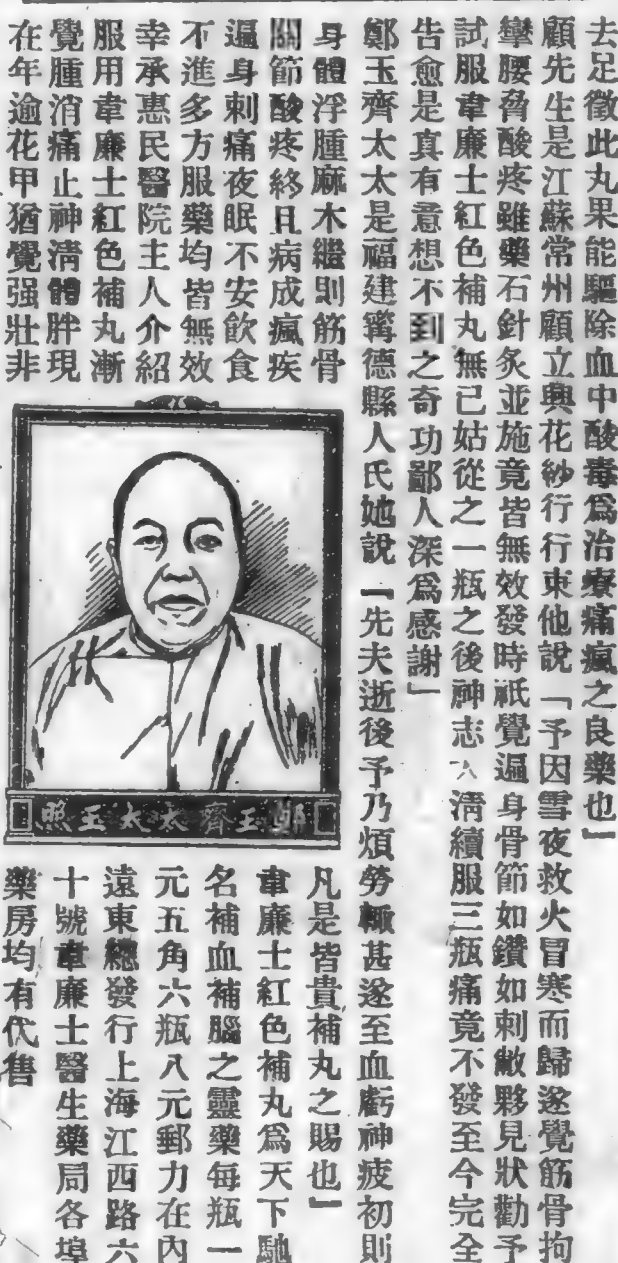 去足徵此丸果能驅除血中酸毒爲治療痛瘋之良藥也」
顧先生是江蘇常州顧立興花紗行行東他說「予因雪夜救火冒寒而歸遂覺筋骨拘
攣腰脅酸疼雖藥石針灸並施竟皆無效發時祇覺遍身骨節如鑽如刺敝夥見狀勸予
試服韋廉士紅色補丸無已姑從之一瓶之後神志清續服三瓶痛竟不發至今完全
告愈是真有意想不到之奇功鄙人深爲感謝」
鄭玉齊太太是福建寗德縣人氏她說「先夫逝後予乃煩勞輙甚遂至血虧神疲初則
身體浮腫麻木繼則筋骨
關節酸疼終且病成瘋疾
遍身刺痛夜眠不安飲食
不進多方服藥均皆無效
幸承惠民醫院主人介紹
服用韋廉士紅色補丸漸
覺腫消痛止神清體胖現
在年逾花甲猶覺强壯非
鄭玉齊太太玉照
凡是皆貴補丸之賜也」
韋廉士紅色補丸爲天下馳
名補血補腦之靈藥每瓶一
元五角六瓶八元郵力在內
遠東總發行上海江西路六
十號韋廉士醫生藥局各埠
藥房均有代售